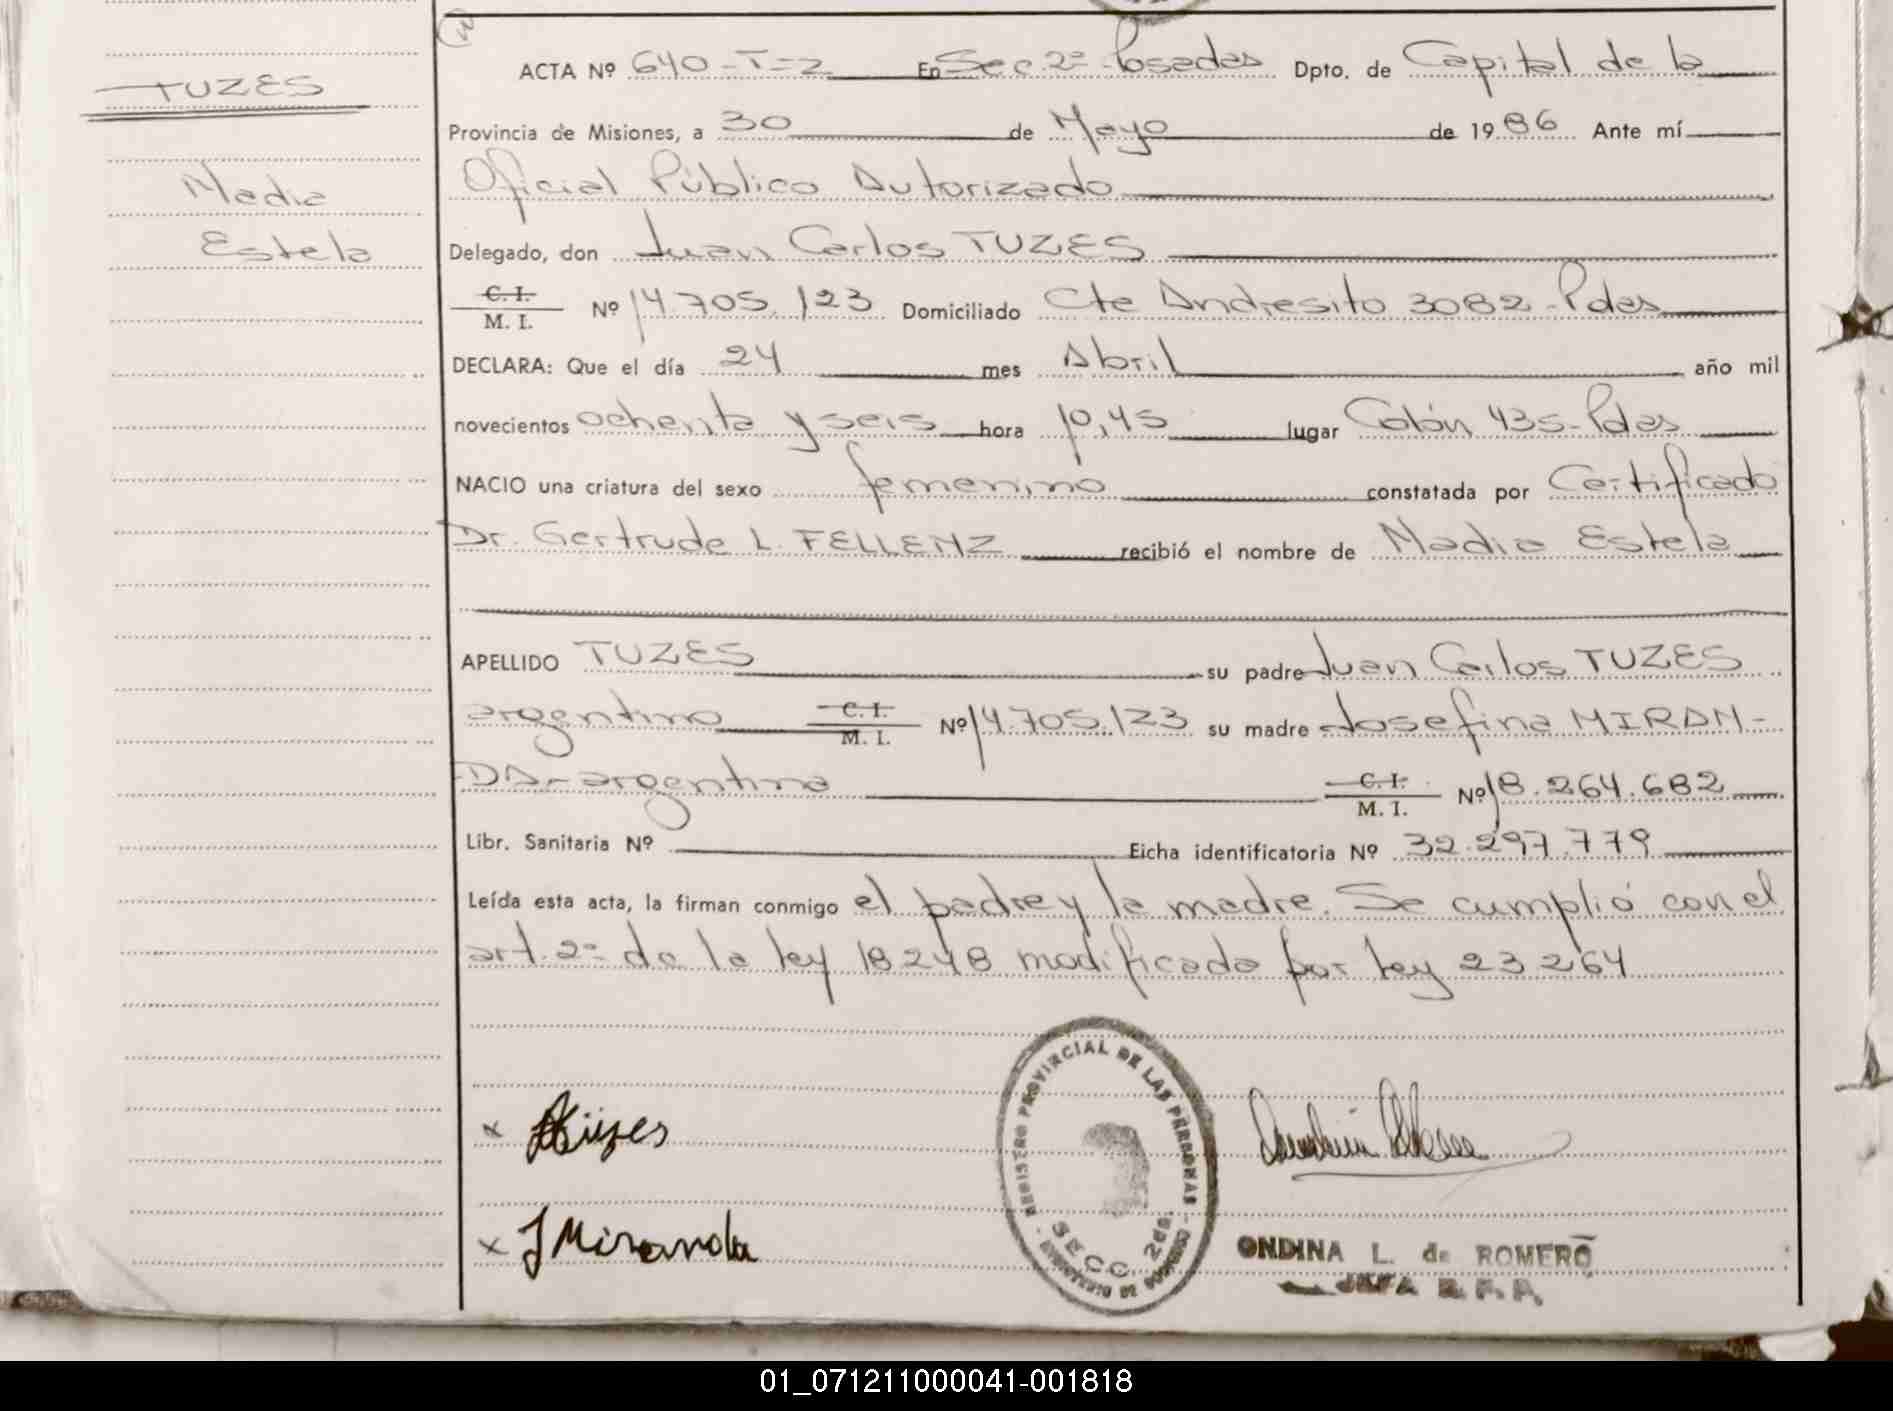 TUZES
Nadia
Estela
ACTA Nº 640-T-2 En Sec 2ª Posadas Dpto. de Capital de la
Provincia de Misiones, a 30 de Mayo de 1986 Ante mí
Oficial Público Autorizado
Delegado, don Juan Carlos TUZES
C. I. / M. I. Nº 14.705.123 Domiciliado Cte Andresito 3082-Pdas
DECLARA: Que el día 24 mes Abril año mil
novecientos ochenta y seis hora 10,45 lugar Colón 435-Pdas
NACIO una criatura del sexo femenino constatada por Certificado
Dr. Gertrude L. FELLENZ recibió el nombre de Nadia Estela
APELLIDO TUZES su padre Juan Carlos TUZES
argentino C. I. / M. I. Nº 14.705.123 su madre Josefina MIRAN-
DA-argentina C. I. / M. I. Nº 18.264.682
Libr. Sanitaria Nº Ficha identificatoria Nº 32.297.779
Leída esta acta, la firman conmigo el padre y la madre. Se cumplió con el
art. 2º de la ley 18248 modificada por ley 23264
REGISTRO PROVINCIAL DE LAS PERSONAS
SECC. 2da.
x Tuzes
x J Miranda
ONDINA L. de ROMERO
JEFA R. P. P.
01_071211000041-001818